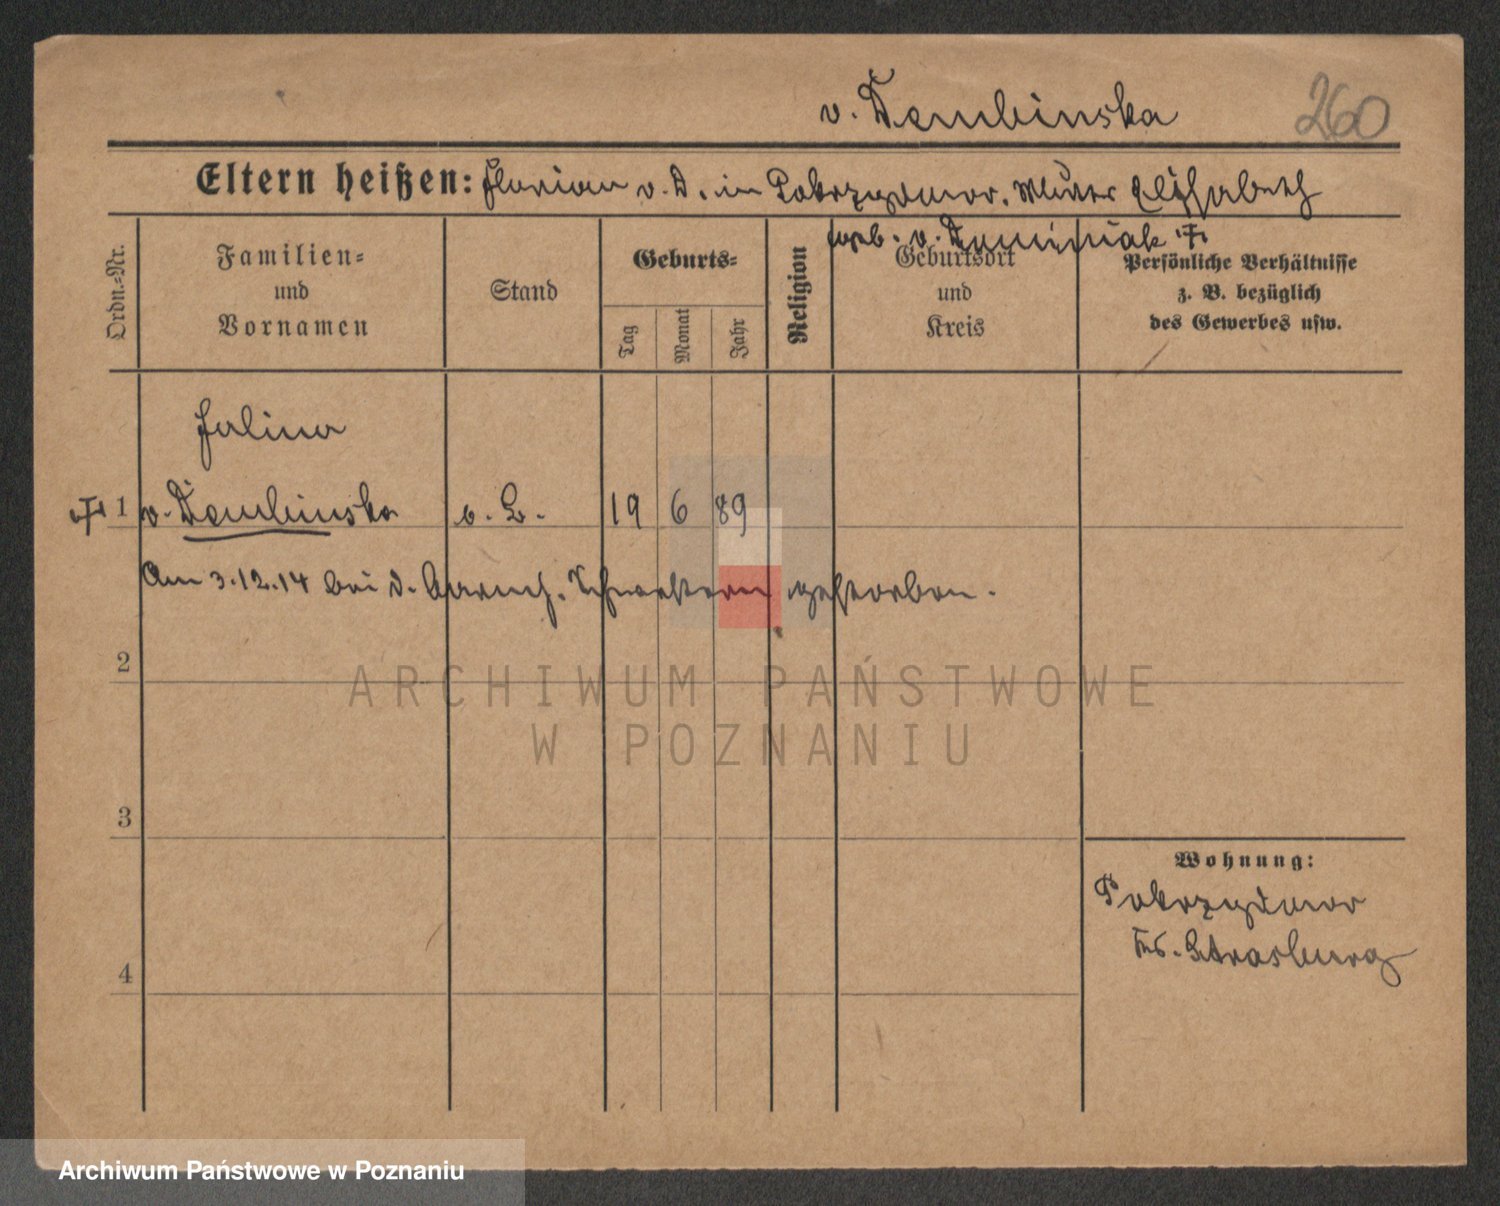 v. Dembinska
260
Eltern heißen: Florian v. D. in Pokrzydowo. Mutter Elisabeth
geb. v. †
Ordn.=Nr.
Familien=
und
Vornamen
Stand
Geburts=
Tag
Monat
Jahr
Religion
Geburtsort
und
Kreis
Persönliche Verhältnisse
z. B. bezüglich
des Gewerbes usw.
Halina
† 1 v. Dembinska o. G. 19 6 89
Am 3.12.14 bei d. Barmh. Schwestern gestorben.
2
3
4
Wohnung:
Pokrzydowo
Krs. Strasburg
ARCHIWUM PAŃSTWOWE
W POZNANIU
Archiwum Państwowe w Poznaniu